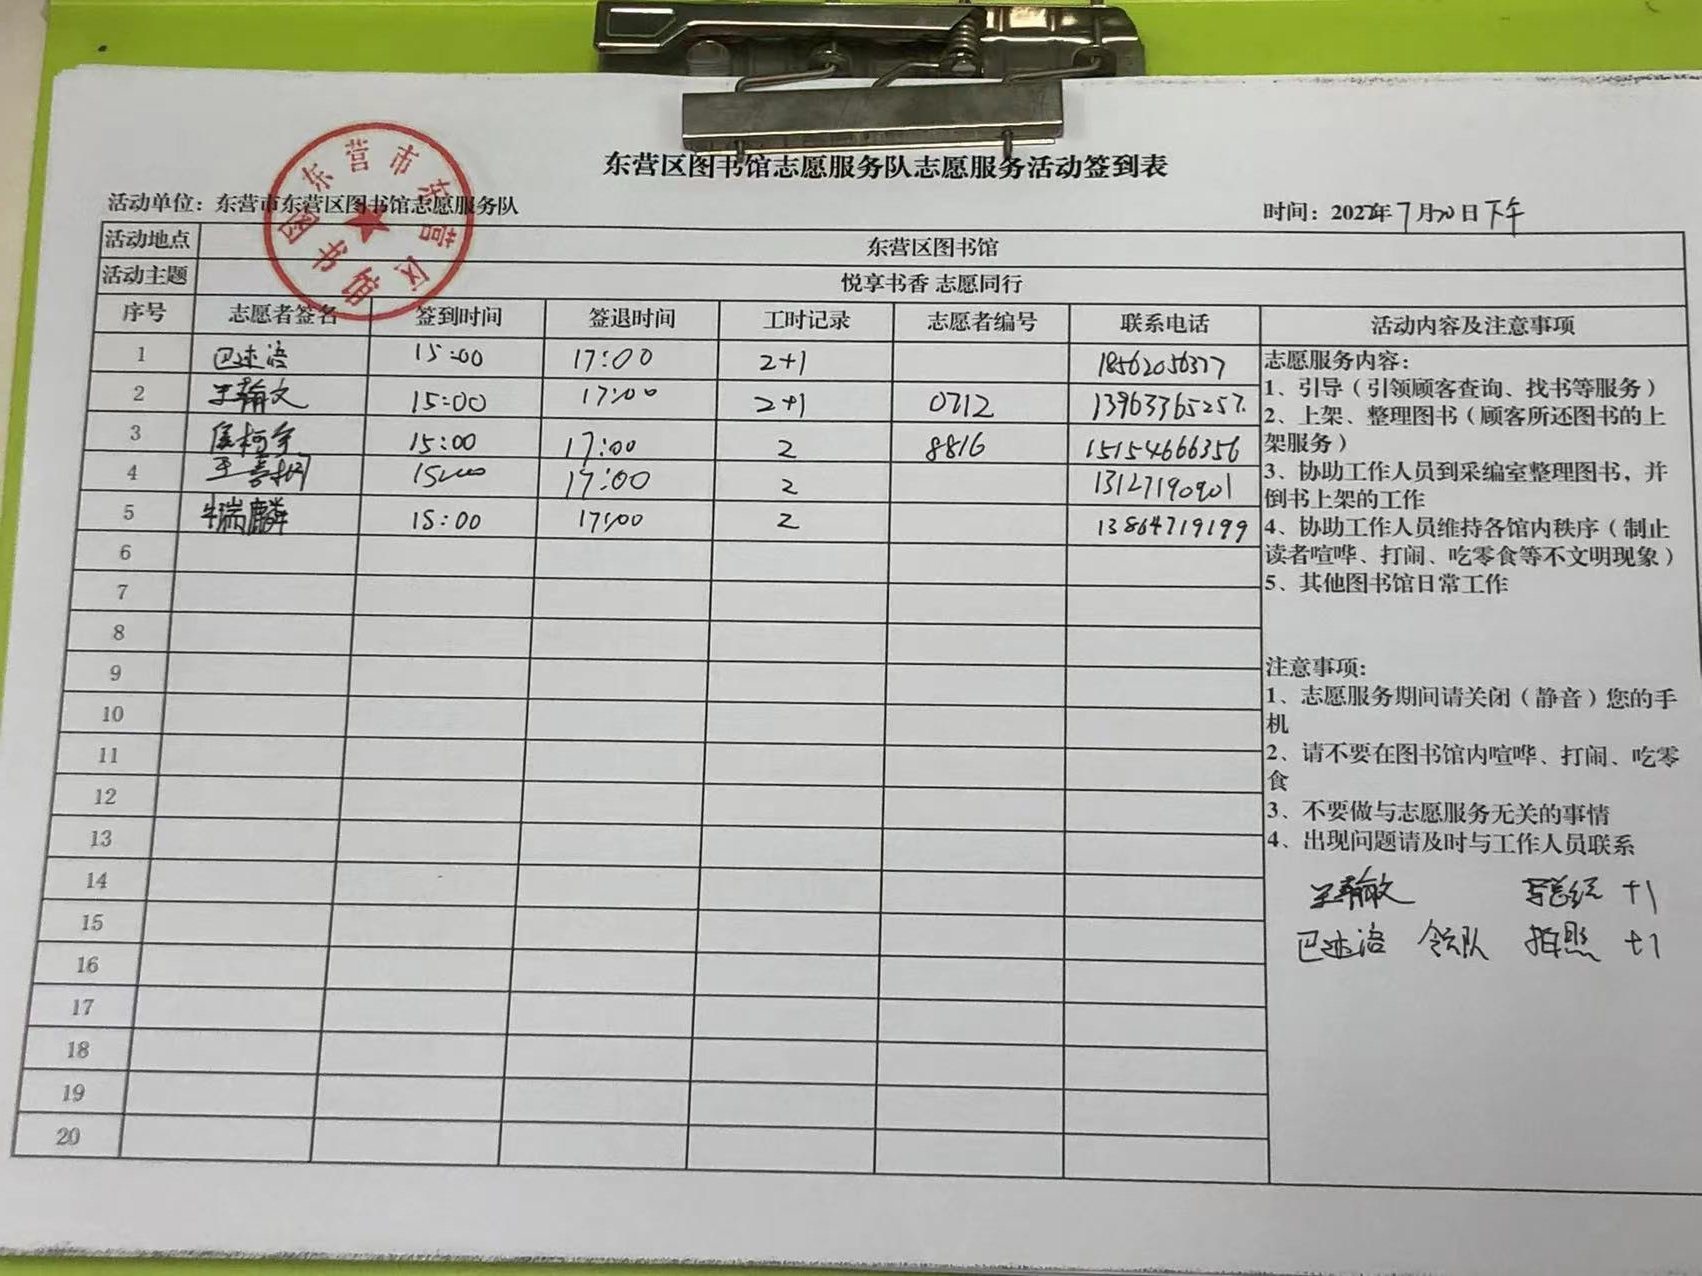 东营市东营区图书馆
东营区图书馆志愿服务队志愿服务活动签到表
活动单位：东营市东营区图书馆志愿服务队 时间：202 年7月20日下午
活动地点 东营区图书馆
活动主题 悦享书香 志愿同行
序号 志愿者签名 签到时间 签退时间 工时记录 志愿者编号 联系电话 活动内容及注意事项
1 15:00 17:00 2+1 18562056377
2 王翰文 15:00 17:00 2+1 0712 13963365257
3 15:00 17:00 2 8816 15154666356
4 15:00 17:00 2 13127190901
5 牛瑞麟 15:00 17:00 2 13864719199
6
7
8
9
10
11
12
13
14
15
16
17
18
19
20
志愿服务内容：
1、引导（引领顾客查询、找书等服务）
2、上架、整理图书（顾客所还图书的上
架服务）
3、协助工作人员到采编室整理图书，并
倒书上架的工作
4、协助工作人员维持各馆内秩序（制止
读者喧哗、打闹、吃零食等不文明现象）
5、其他图书馆日常工作
注意事项：
1、志愿服务期间请关闭（静音）您的手
机
2、请不要在图书馆内喧哗、打闹、吃零
食
3、不要做与志愿服务无关的事情
4、出现问题请及时与工作人员联系
王翰文 写总结 +1
领队 拍照 +1